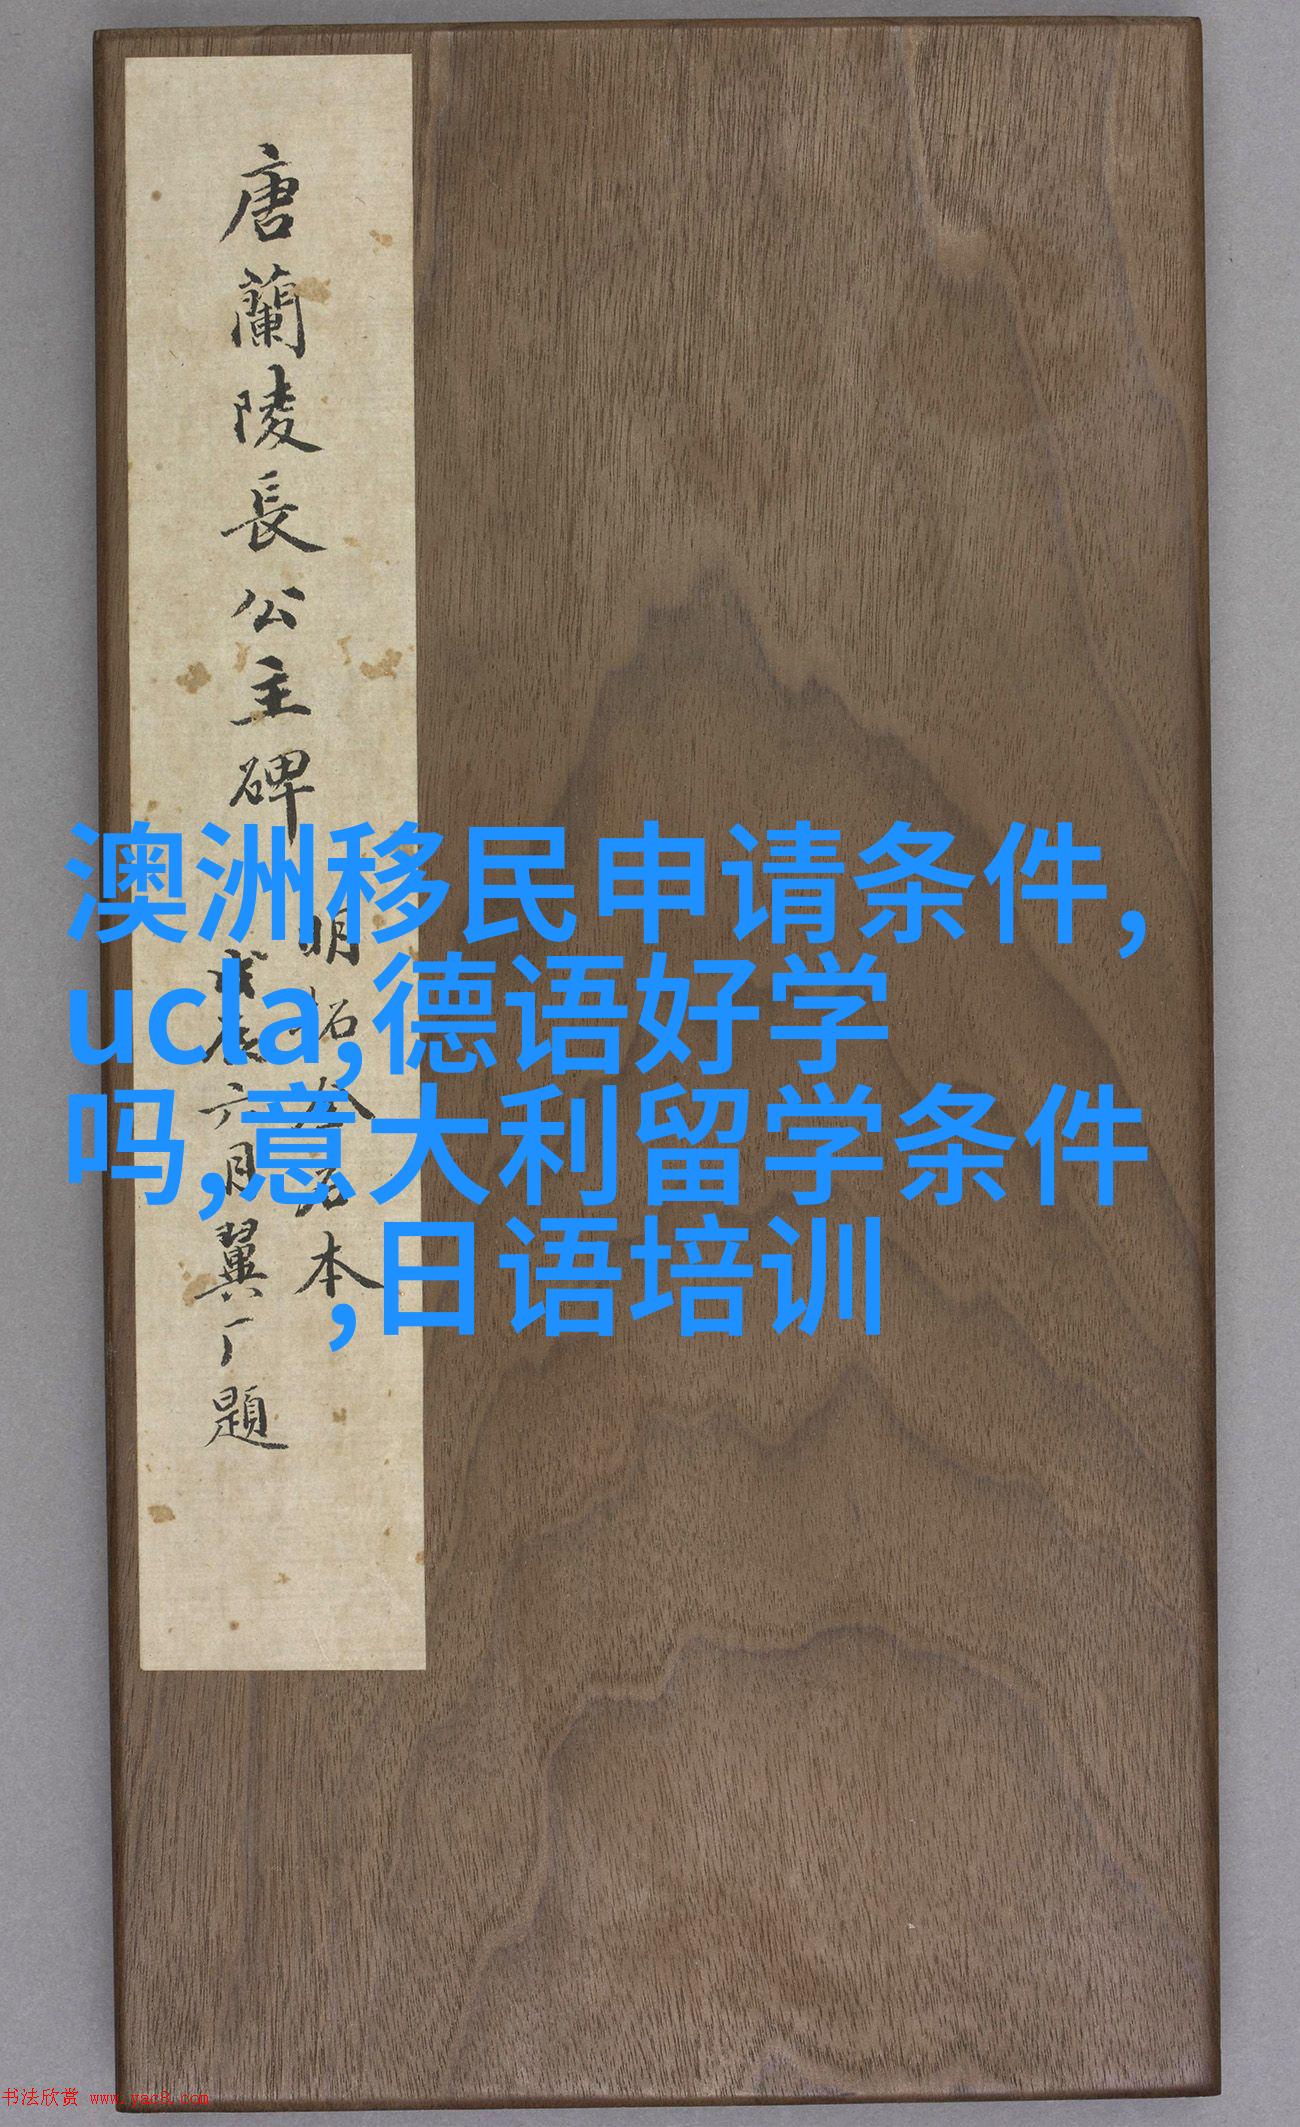 唐蘭陵長公主碑
明拓
本
六月翼厂題
澳洲移民申请条件,
ucla,德语好学
吗,意大利留学条件
,日语培训
书法欣赏 www.yac8.com